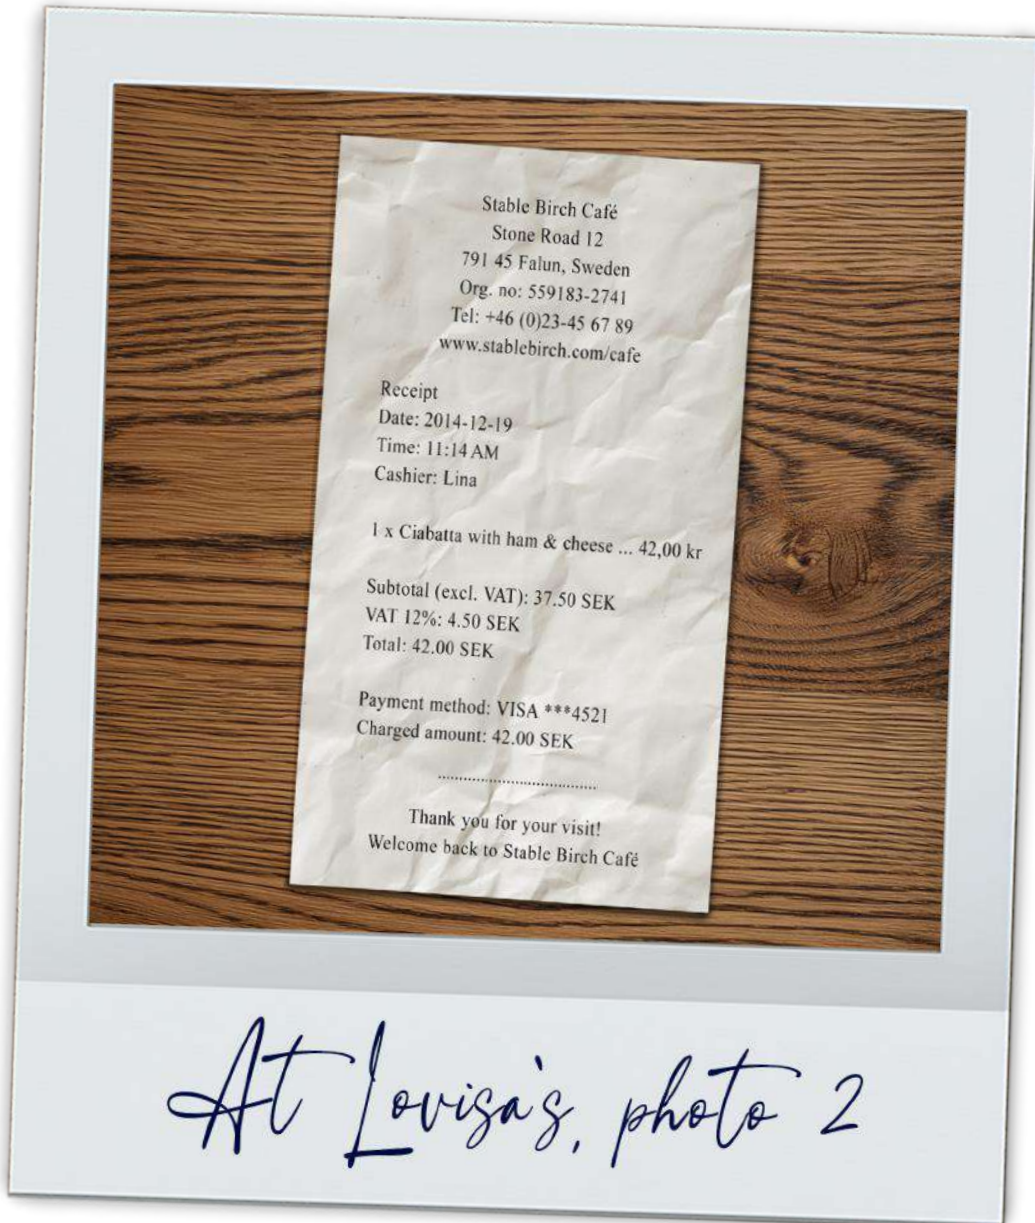 Stable Birch Café
Stone Road 12
791 45 Falun, Sweden
Org. no: 559183-2741
Tel: +46 (0)23-45 67 89
www.stablebirch.com/cafe
Receipt
Date: 2014-12-19
Time: 11:14 AM
Cashier: Lina
1 x Ciabatta with ham & cheese ... 42,00 kr
Subtotal (excl. VAT): 37.50 SEK
VAT 12%: 4.50 SEK
Total: 42.00 SEK
Payment method: VISA ***4521
Charged amount: 42.00 SEK
......................................
Thank you for your visit!
Welcome back to Stable Birch Café
At Lovisa's, photo 2